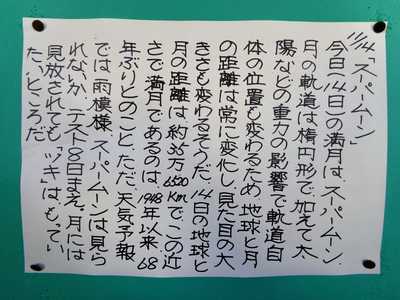 11/14「スーパームーン」
今日(14日)の満月は、スーパームーン。
月の軌道は楕円形で、加えて、太
陽などの重力の影響で軌道自
体の位置も変わるため、地球と月
の距離は常に変化し、見た目の大
きさも変わるそうだ。14日の地球と
月の距離は約35万6520Kmで、この近
さで満月であるのは、1948年以来、68
年ぶりとのこと。ただ、天気予報
では雨模様。スーパームーンは見ら
れないか。テスト8日まえ。月には
見放されても、「ツキ」は、もってい
たいところだ。